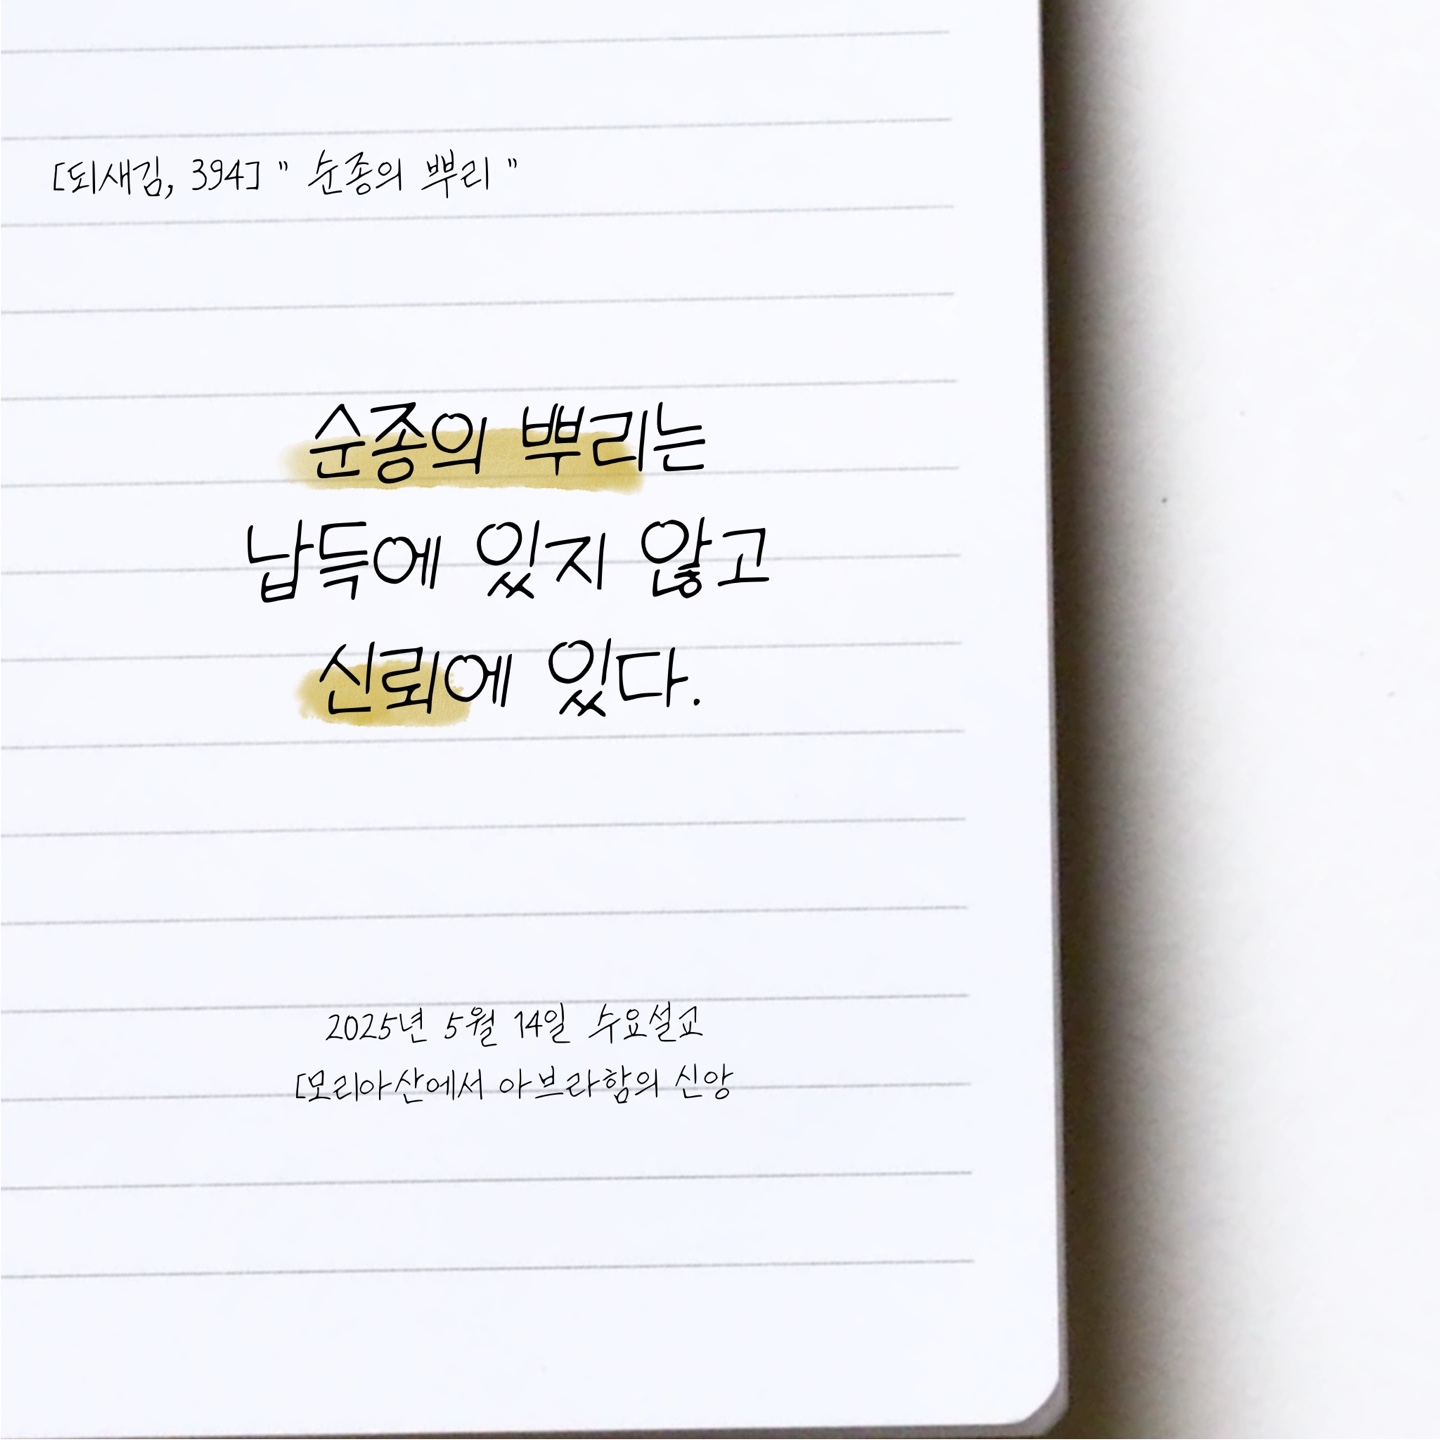 [되새김, 394] " 순종의 뿌리 "
순종의 뿌리는
납득에 있지 않고
신뢰에 있다.
2025년 5월 14일 수요설교
[모리아산에서 아브라함의 신앙